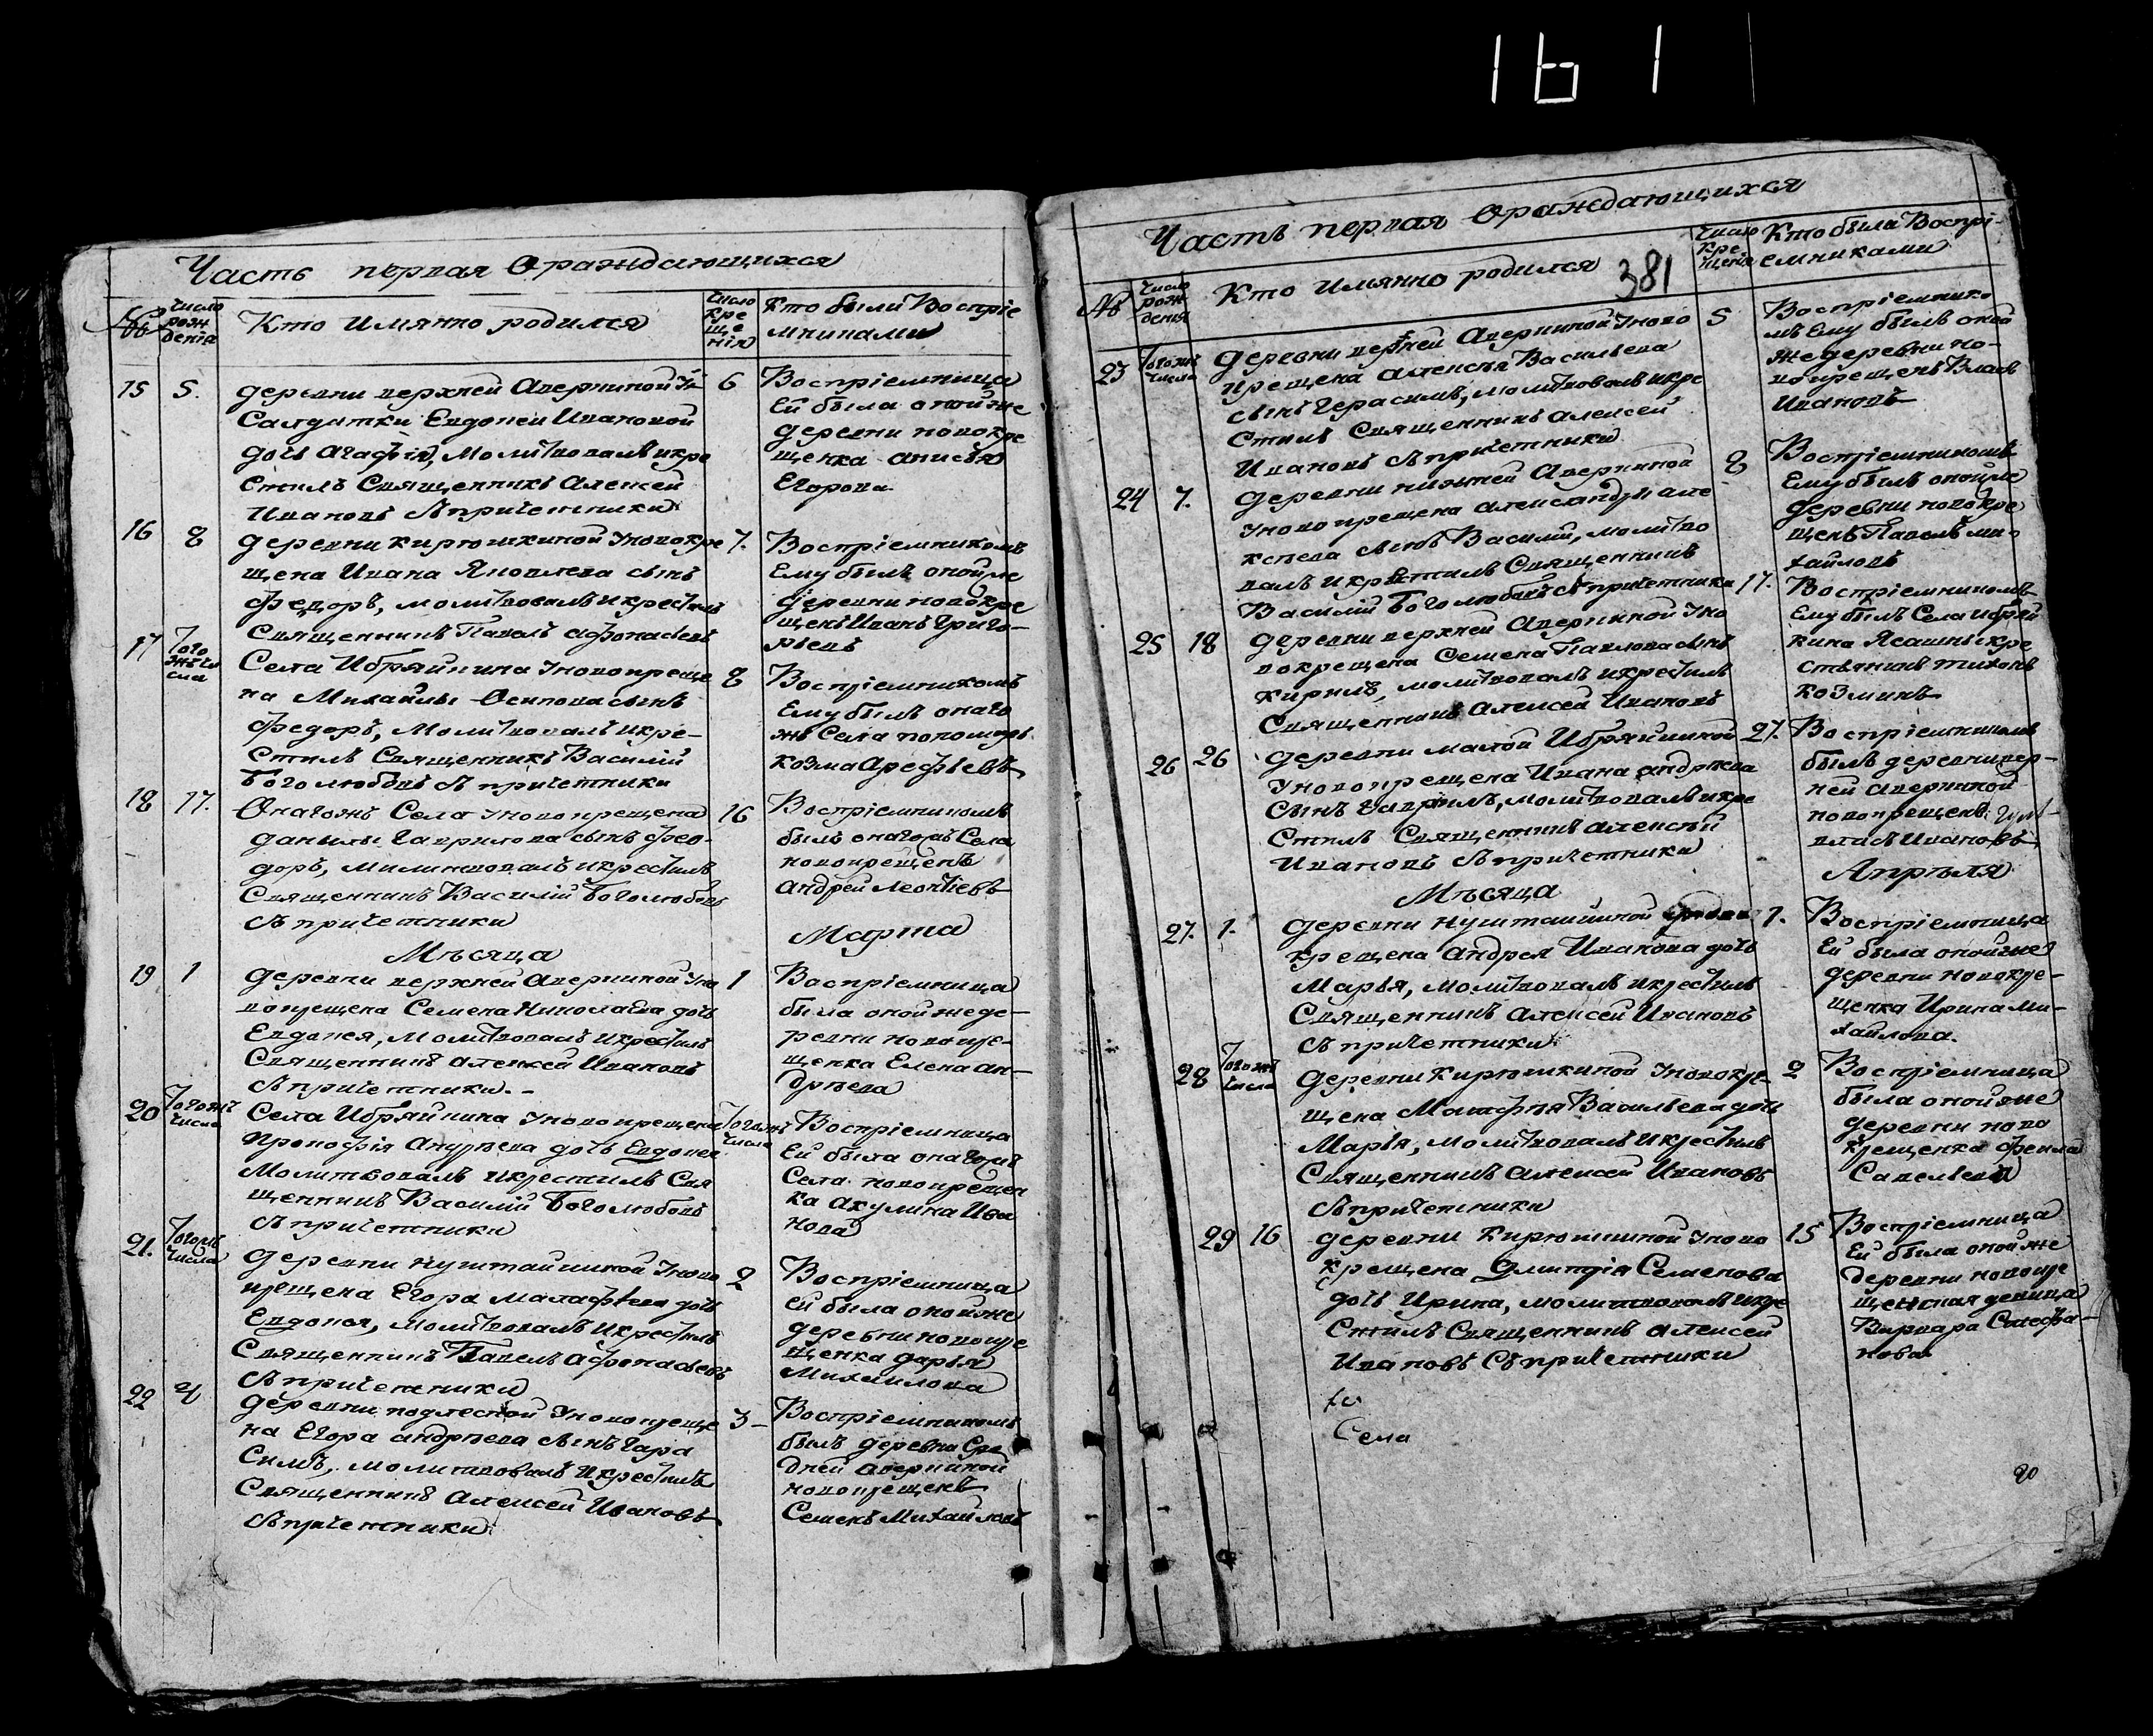 161
Часть первая Ораждающихся
№
Число рож денія
Кто имянно родился
Число кре ще нія
Кто были Воспріе
мниками
15 5.
деревни верхней Аверкиной у
6
Салдатки Евдокеи Ивановой
дочь Агафія, Молитвовалъ икре
стилъ Священникъ Алексей
Ивановъ съ причетники
Воспріемница
Ей была онойже
деревни новокре
щенка Анисья
Егорова
16 8
деревни Кирюшкиной уновокре
7.
щена Ивана Яковлева сынъ
Федоръ, молитвовалъ икрестилъ
Священникъ Павелъ Афонасьевъ
Воспріемникомъ
Ему былъ онойже
деревни новокре
щенъ Иванъ Григо-
рьевъ
17 Того жъ чи сла
Села Ибряйкина уновокреще
8
на Михайлы Осипова сынъ
Федоръ, Молитвовалъ икре-
стилъ Священникъ Василій
Боголюбовъ съ причетники
Воспріемникомъ
Ему былъ онаго
жъ Села
Козма Арефьевъ
18 17.
Онагожъ Села уновокрещена
16
Данилы Гаврилова сынъ Фео-
доръ, Молитвовалъ икрестилъ
Священникъ Василій Боголюбовъ
съ причетники
Воспріемникомъ
былъ онагожъ Села
новокрещенъ
Андрей Леонтіевъ
Мѣсяца Марта
19 1
деревни верхней Аверкиной уно
1
вокрещена Семена Николаева дочь
Евдокея, Молитвовалъ икрестилъ
Священникъ Алексей Ивановъ
съ причетники.-
Воспріемница
была онойжеде-
ревни новокре-
щенка Елена Ан-
дрѣева
20 Тогожъ числа
Села Ибряйкина уновокрещена
Тогожъ числа
Прокофія Андрѣева дочь Евдокея
Молитвовалъ икрестилъ Свя
щенникъ Василій Боголюбовъ
съ причетники
Воспріемница
Ей была онагожъ
Села новокрещен
ка Акулина Ива
нова
21. Тогожъ числа
деревни Нуштайкиной уново
2
крещена Егора Малафѣева дочь
Евдокея, Молитвовалъ икрестилъ
Священникъ Павелъ Афонасьевъ
съ причетники
Воспріемница
Ей была онойже
деревни новокре
щенка Дарья
Михаилова
22
деревни подлесной уновокреще
3-
на Егора Андрѣева сынъ Гера
симъ, молитвовалъ икрестилъ
Священникъ Алексей Ивановъ
съ причетники
Воспріемникомъ
былъ деревни Сре
дней Аверкиной
новокрещенъ
Семенъ Михаиловъ
Часть первая Ораждающихся
№
Число рож дения
Кто имянно родился
381
Число кре щенія
Кто была Воспрі-
емниками
23 Тогожъ числа
деревни верхней Аверкиной уново
5
крещена Алексѣя Васильева
сынъ Герасимъ, молитвовалъ икре
стилъ Священникъ Алексей
Ивановъ съ причетники
Воспріемнико
мъ Ему былъ оной
же деревни но-
вокрещенъ Власъ
Ивановъ
24 7.
деревни нижней Аверкиной
8
уновокрещена Александры Але
ксѣева сынъ Василій, молитво
валъ икрестилъ Священникъ
Василій Боголюбовъ съ причетники
Воспріемникомъ
Ему былъ онойже
деревни новокре
щенъ Павелъ ми-
хайловъ
25 18
деревни верхней Аверкиной уно
17.
вокрещена Семена Павлова сынъ
Кирилъ, молитвовалъ икрестилъ
Священникъ Алексей Ивановъ
Воспріемникомъ
Ему былъ Села Ибряй
кина Ясашный кре
стьянинъ Тихонъ
Козминъ
26 26
деревни малой Ибряйкиной
27.
уновокрещена Ивана Андрѣева
Сынъ Гаврилъ, молитвовалъ икре
стилъ Священникъ Алексѣй
Ивановъ съ причетники
Воспріемникомъ
былъ деревни вер-
ней Аверкиной
новокрещенъ
Ивановъ
Мѣсяца Апрѣля
27. 1.
деревни Нуштайкиной уново
1.
крещена Андрея Иванова дочь
Марья, молитвовалъ икрестилъ
Священникъ Алексей Ивановъ
съ причетники
Воспріемница
Ей была онойже
деревни новокре-
щенка Ирина Ми-
хайлова.
28 Тогожъ числа
деревни Кирюшкиной уновокре-
2
щена Малафѣя Васильева дочь
Марія, молитвовалъ икрестилъ
Священникъ Алексей Ивановъ
съ причетники
Воспріемница
была онойже
деревни ново
крещенка Фекла
Савельева
29 16
деревни Кирюшкиной уново
15
крещена Дмитрія Семенова
дочь Ирина, молитвовалъ икре
стилъ Священникъ Алексей
Ивановъ съ причетники
Воспріемница
Ей была онойже
деревни новокре
щенская девица
Варвара Стефа-
нова
Села
20